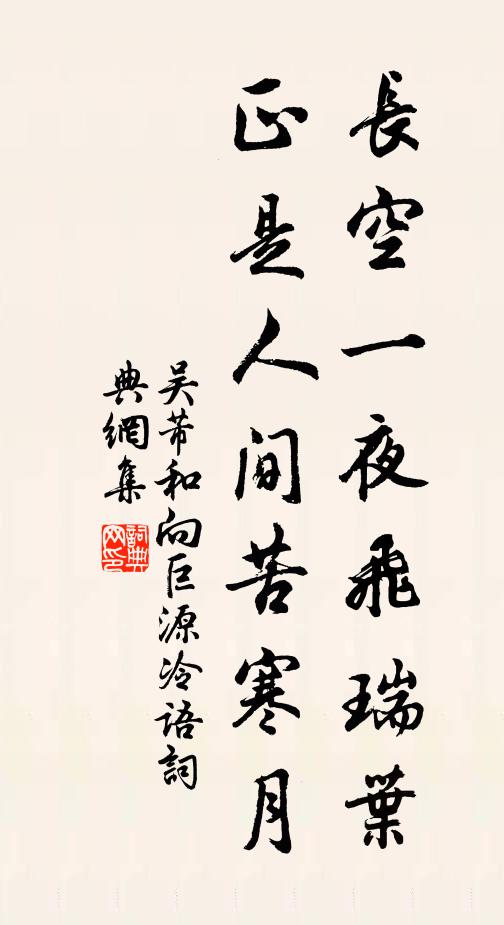 長空一夜飛瑞葉
正是人間苦寒月
吴芾和向巨源冷語詞
典網集
詞典
网印